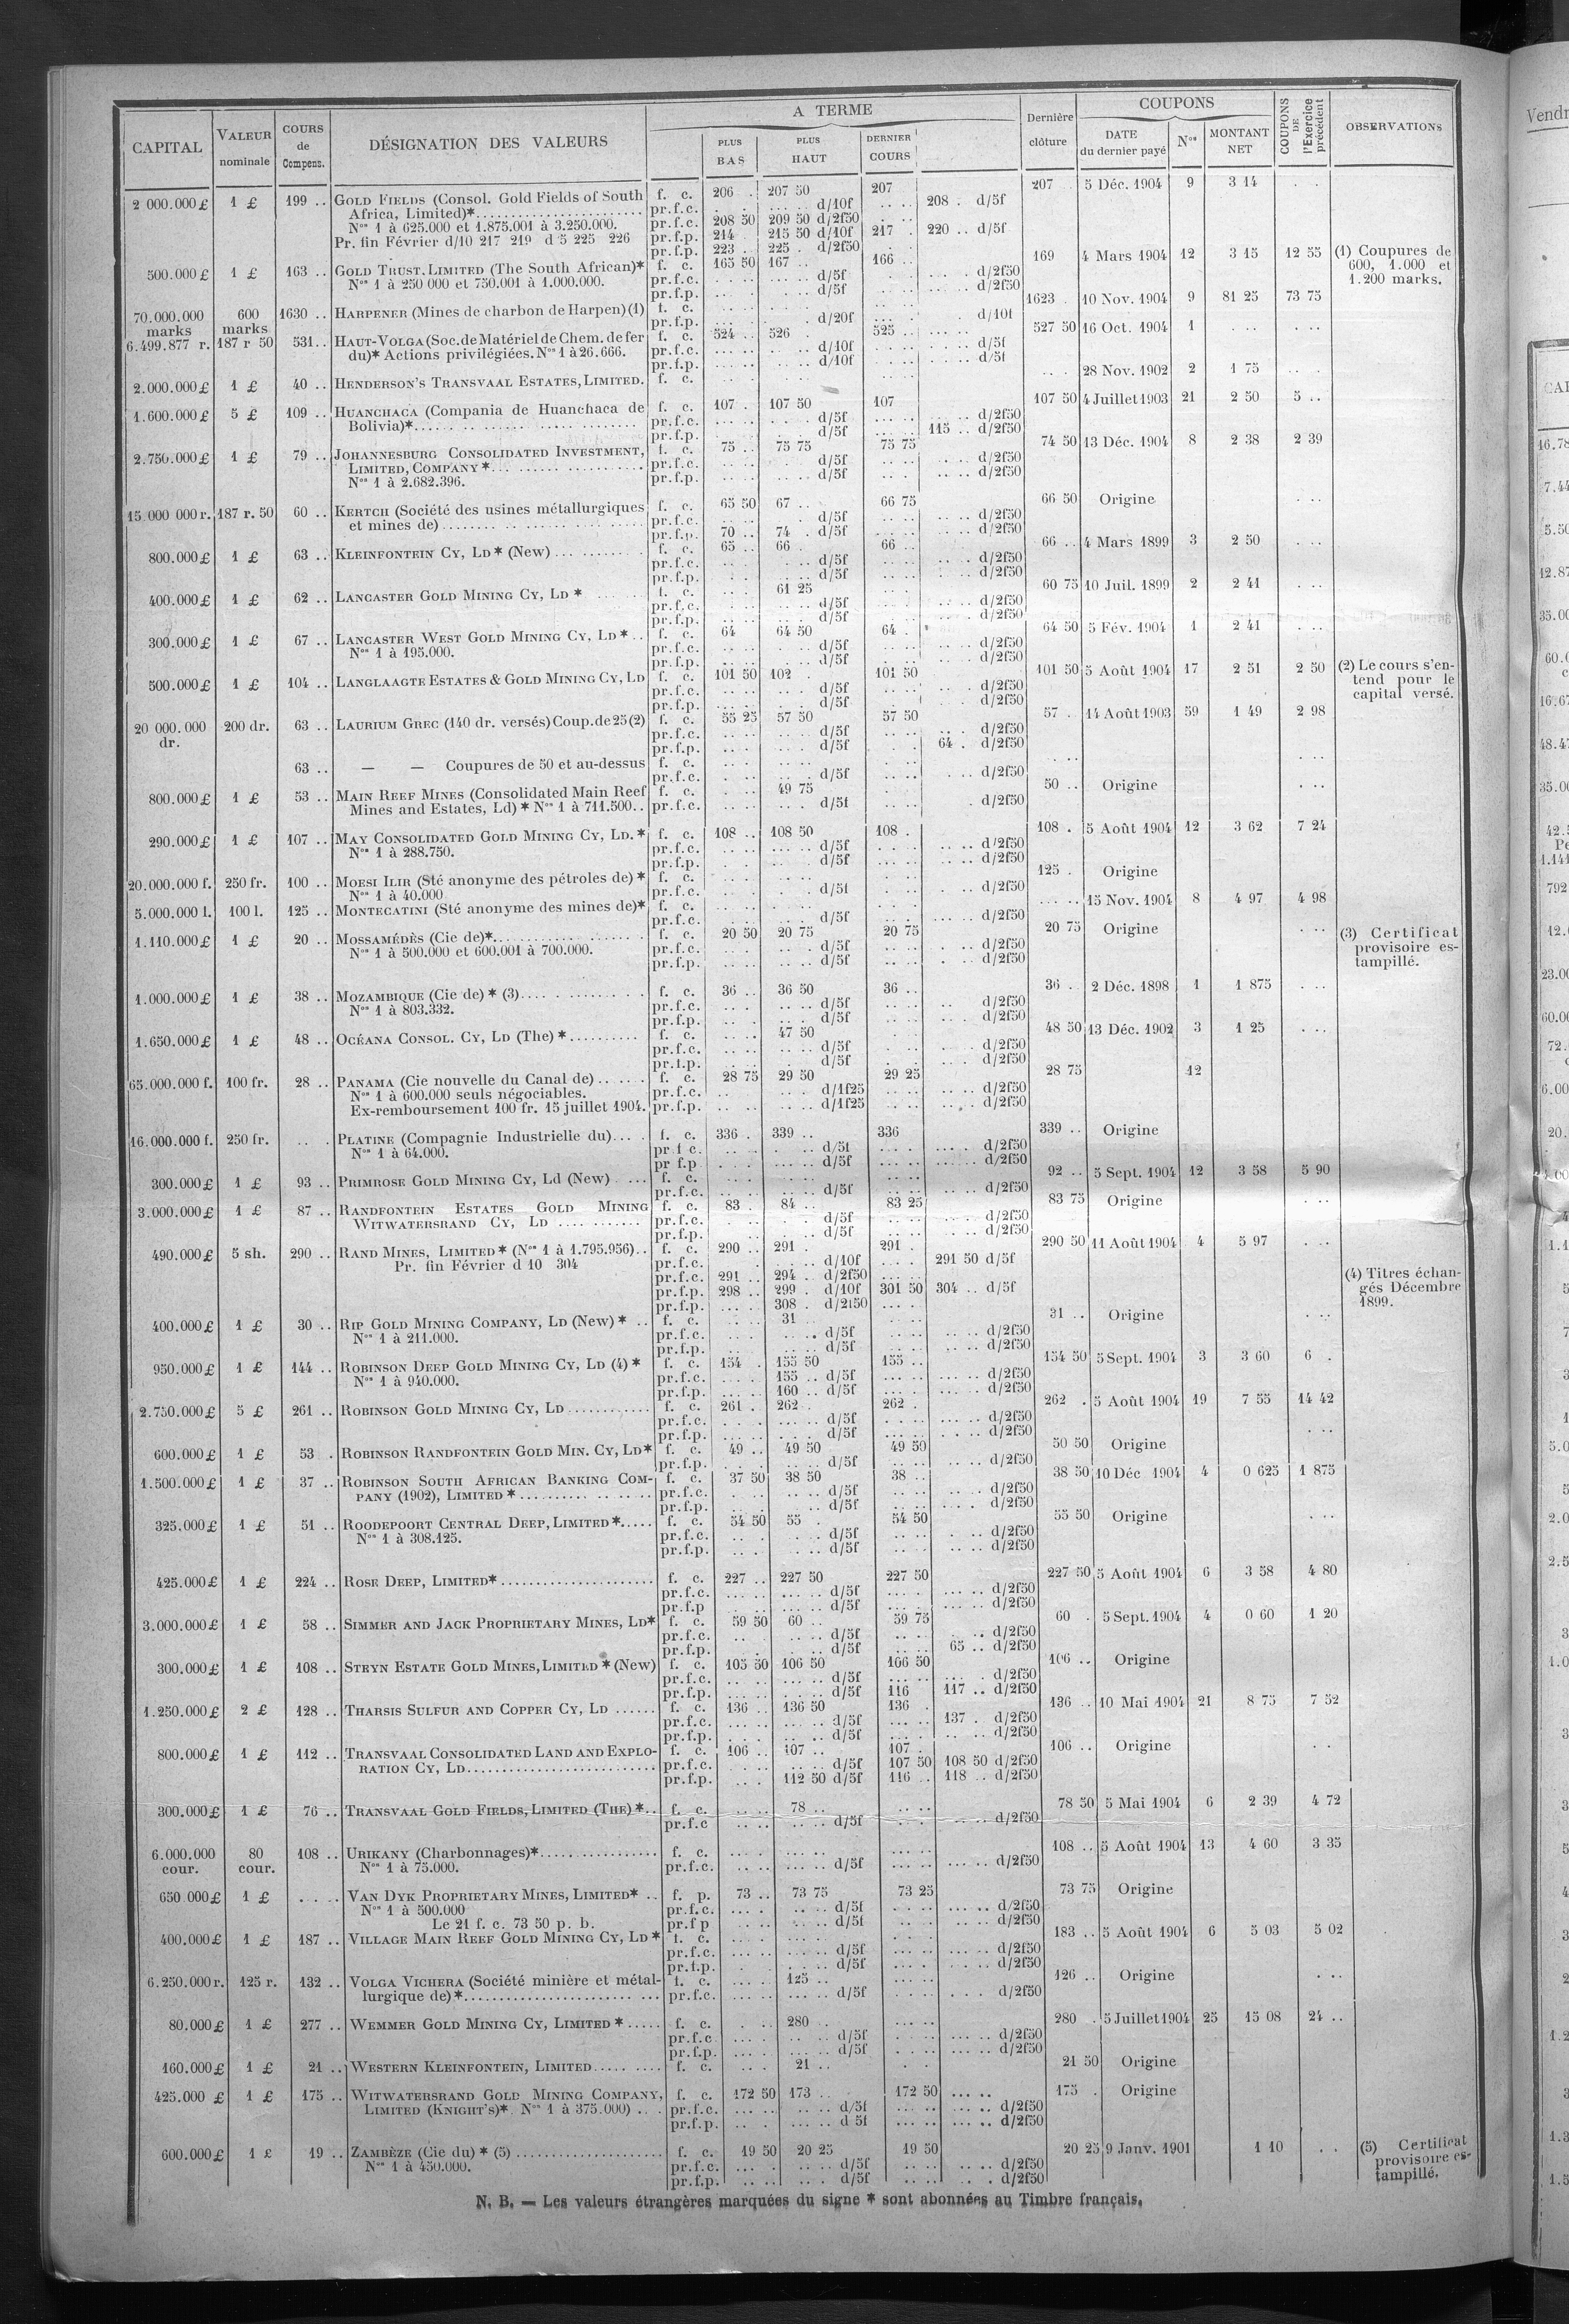 CAPITAL | VALEUR nominale | COURS de Compens. | DÉSIGNATION DES VALEURS | A TERME | PLUS BAS | PLUS HAUT | DERNIER COURS | Dernière clôture | COUPONS | DATE du dernier payé | Nos | MONTANT NET | COUPONS DE l'Exercice précédent | OBSERVATIONS
2 000.000 £ 1 £ 199 .. GOLD FIELDS (Consol. Gold Fields of South f. c. 206 . 207 50 207 207 5 Déc. 1904 9 3 14
Africa, Limited)* pr.f.c. d/10f 208 . d/5f
Nos 1 à 625.000 et 1.875.001 à 3.250.000. pr.f.c. 208 50 209 50 d/2f50
Pr. fin Février d/10 217 219 d 5 225 226 pr.f.p. 214 215 50 d/10f 217 . 220 .. d/5f
pr.f.p. 223 .. 225 . d/2f50
500.000 £ 1 £ 163 .. GOLD TRUST, LIMITED (The South African)* f. c. 165 50 167 .. 166 .. 169 4 Mars 1904 12 3 15 12 55 (1) Coupures de
Nos 1 à 250 000 et 750.001 à 1.000.000. pr.f.c. d/5f d/2f50 600, 1.000 et
pr.f.p. d/5f d/2f50 1.200 marks.
70.000.000 marks 600 marks 1630 .. HARPENER (Mines de charbon de Harpen) (1) f. c. 1623 . 10 Nov. 1904 9 81 25 73 75
pr.f.p. d/20f d/10f
6.499.877 r. 187 r 50 531.. HAUT-VOLGA (Soc. de Matériel de Chem. de fer f. c. 524 .. 526 525 .. 527 50 16 Oct. 1904 1
du)* Actions privilégiées. Nos 1 à 26.666. pr.f.c. d/10f d/5f
pr.f.p. d/10f d/5f
2.000.000 £ 1 £ 40 .. HENDERSON'S TRANSVAAL ESTATES, LIMITED. f. c. 28 Nov. 1902 2 1 75
1.600.000 £ 5 £ 109 .. HUANCHACA (Compania de Huanchaca de f. c. 107 . 107 50 107 107 50 4 Juillet 1903 21 2 50 5 ..
Bolivia)* pr.f.c. d/5f d/2f50
pr.f.p. d/5f 115 .. d/2f50
2.750.000 £ 1 £ 79 .. JOHANNESBURG CONSOLIDATED INVESTMENT, f. c. 75 .. 75 75 75 75 74 50 13 Déc. 1904 8 2 38 2 39
LIMITED, COMPANY * pr.f.c. d/5f d/2f50
Nos 1 à 2.682.396. pr.f.p. d/5f d/2f50
15 000 000 r. 187 r. 50 60 .. KERTCH (Société des usines métallurgiques f. c. 65 50 67 .. 66 75 66 50 Origine
et mines de) pr.f.c. d/5f d/2f50
pr.f.p. 70 .. 74 . d/5f d/2f50
800.000 £ 1 £ 63 .. KLEINFONTEIN CY, LD * (New) f. c. 65 .. 66 . 66 .. 66 .. 4 Mars 1899 3 2 50
pr.f.c. d/5f d/2f50
pr.f.p. d/5f d/2f50
400.000 £ 1 £ 62 .. LANCASTER GOLD MINING CY, LD * f. c. 61 25 60 75 10 Juil. 1899 2 2 41
pr.f.c. d/5f d/2f50
pr.f.p. d/5f d/2f50
300.000 £ 1 £ 67 .. LANCASTER WEST GOLD MINING CY, LD * f. c. 64 64 50 64 . 64 50 5 Fév. 1904 1 2 41
Nos 1 à 195.000. pr.f.c. d/5f d/2f50
pr.f.p. d/5f d/2f50
500.000 £ 1 £ 104 .. LANGLAAGTE ESTATES & GOLD MINING CY, LD f. c. 101 50 102 . 101 50 101 50 5 Août 1904 17 2 51 2 50 (2) Le cours s'en-
pr.f.c. d/5f d/2f50 tend pour le
pr.f.p. d/5f d/2f50 capital versé.
20 000.000 dr. 200 dr. 63 .. LAURIUM GREC (140 dr. versés) Coup. de 25 (2) f. c. 55 25 57 50 57 50 57 . 14 Août 1903 59 1 49 2 98
pr.f.c. d/5f d/2f50
pr.f.p. d/5f 64 . d/2f50
63 .. — — Coupures de 50 et au-dessus f. c.
pr.f.c. d/5f d/2f50
800.000 £ 1 £ 53 .. MAIN REEF MINES (Consolidated Main Reef f. c. 49 75 50 .. Origine
Mines and Estates, Ld) * Nos 1 à 711.500.. pr.f.c. d/5f d/2f50
290.000 £ 1 £ 107 .. MAY CONSOLIDATED GOLD MINING CY, LD. * f. c. 108 .. 108 50 108 . 108 . 5 Août 1904 12 3 62 7 24
Nos 1 à 288.750. pr.f.c. d/5f d/2f50
pr.f.p. d/5f d/2f50
20.000.000 f. 250 fr. 100 .. MOESI ILIR (Sté anonyme des pétroles de) * f. c. 125 . Origine
Nos 1 à 40.000 pr.f.c. d/5f d/2f50
5.000.000 l. 100 l. 125 .. MONTECATINI (Sté anonyme des mines de)* f. c. 15 Nov. 1904 8 4 97 4 98
pr.f.c. d/5f d/2f50
1.110.000 £ 1 £ 20 .. MOSSAMÉDÈS (Cie de)* f. c. 20 50 20 75 20 75 20 75 Origine (3) Certificat
Nos 1 à 500.000 et 600.001 à 700.000. pr.f.c. d/5f d/2f50 provisoire es-
pr.f.p. d/5f d/2f50 tampillé.
1.000.000 £ 1 £ 38 .. MOZAMBIQUE (Cie de) * (3) f. c. 36 .. 36 50 36 .. 36 . 2 Déc. 1898 1 1 875
Nos 1 à 803.332. pr.f.c. d/5f d/2f50
pr.f.p. d/5f d/2f50
1.650.000 £ 1 £ 48 .. OCÉANA CONSOL. CY, LD (The) * f. c. 47 50 48 50 13 Déc. 1902 3 1 25
pr.f.c. d/5f d/2f50
pr.f.p. d/5f d/2f50
65.000.000 f. 100 fr. 28 .. PANAMA (Cie nouvelle du Canal de) f. c. 28 75 29 50 29 25 28 75 12
Nos 1 à 600.000 seuls négociables. pr.f.c. d/1f25 d/2f50
Ex-remboursement 100 fr. 15 juillet 1904. pr.f.p. d/1f25 d/2f50
16.000.000 f. 250 fr. PLATINE (Compagnie Industrielle du) f. c. 336 . 339 .. 336 339 .. Origine
Nos 1 à 64.000. pr f c. d/5f d/2f50
pr f.p d/5f d/2f50
300.000 £ 1 £ 93 .. PRIMROSE GOLD MINING CY, Ld (New) f. c. 92 .. 5 Sept. 1904 12 3 58 5 90
pr.f.c. d/5f d/2f50
3.000.000 £ 1 £ 87 .. RANDFONTEIN ESTATES GOLD MINING f. c. 83 . 84 .. 83 25 83 75 Origine
WITWATERSRAND CY, LD pr.f.c. d/5f d/2f50
pr.f.p. d/5f d/2f50
490.000 £ 5 sh. 290 .. RAND MINES, LIMITED * (Nos 1 à 1.795.956).. f. c. 290 .. 291 . 291 . 290 50 11 Août 1904 4 5 97
Pr. fin Février d 10 304 pr.f.c. d/10f 291 50 d/5f
pr.f.c. 291 .. 294 . d/2f50 (4) Titres échan-
pr.f.p. 298 .. 299 . d/10f 301 50 304 .. d/5f gés Décembre
pr.f.p. 308 . d/2f50 1899.
400.000 £ 1 £ 30 .. RIP GOLD MINING COMPANY, LD (New) * f. c. 31 31 .. Origine
Nos 1 à 211.000. pr.f.c. d/5f d/2f50
pr.f.p. d/5f d/2f50
950.000 £ 1 £ 144 .. ROBINSON DEEP GOLD MINING CY, LD (4) * f. c. 154 . 155 50 155 .. 154 50 5 Sept. 1904 3 3 60 6 .
Nos 1 à 940.000. pr.f.c. 155 .. d/5f d/2f50
pr.f.p. 160 .. d/5f d/2f50
2.750.000 £ 5 £ 261 .. ROBINSON GOLD MINING CY, LD f. c. 261 . 262 . 262 . 262 . 5 Août 1904 19 7 55 14 42
pr.f.c. d/5f d/2f50
pr.f.p. d/5f d/2f50
600.000 £ 1 £ 53 . ROBINSON RANDFONTEIN GOLD MIN. CY, LD* f. c. 49 .. 49 50 49 50 50 50 Origine
pr.f.p. d/5f d/2f50
1.500.000 £ 1 £ 37 .. ROBINSON SOUTH AFRICAN BANKING COM- f. c. 37 50 38 50 38 .. 38 50 10 Déc 1904 4 0 625 1 875
PANY (1902), LIMITED * pr.f.c. d/5f d/2f50
pr.f.p. d/5f d/2f50
325.000 £ 1 £ 51 .. ROODEPOORT CENTRAL DEEP, LIMITED * f. c. 54 50 55 . 54 50 55 50 Origine
Nos 1 à 308.125. pr.f.c. d/5f d/2f50
pr.f.p. d/5f d/2f50
425.000 £ 1 £ 224 .. ROSE DEEP, LIMITED* f. c. 227 .. 227 50 227 50 227 50 5 Août 1904 6 3 58 4 80
pr.f.c. d/5f d/2f50
pr.f.p d/5f d/2f50
3.000.000 £ 1 £ 58 .. SIMMER AND JACK PROPRIETARY MINES, LD* f. c. 59 50 60 .. 59 75 60 . 5 Sept. 1904 4 0 60 1 20
pr.f.c. d/5f d/2f50
pr.f.p. d/5f 65 .. d/2f50
300.000 £ 1 £ 108 .. STEYN ESTATE GOLD MINES, LIMITED * (New) f. c. 105 50 106 50 106 50 106 .. Origine
pr.f.c. d/5f d/2f50
pr.f.p. d/5f 116 117 .. d/2f50
1.250.000 £ 2 £ 128 .. THARSIS SULFUR AND COPPER CY, LD f. c. 136 .. 136 50 136 . 136 .. 10 Mai 1904 21 8 75 7 52
pr.f.c. d/5f 137 . d/2f50
pr.f.p. d/5f d/2f50
800.000 £ 1 £ 112 .. TRANSVAAL CONSOLIDATED LAND AND EXPLO- f. c. 106 .. 107 .. 107 . 106 .. Origine
RATION CY, LD pr.f.c. d/5f 107 50 108 50 d/2f50
pr.f.p. 112 50 d/5f 116 .. 118 .. d/2f50
300.000 £ 1 £ 76 .. TRANSVAAL GOLD FIELDS, LIMITED (THE) * f. c. 78 .. 78 50 5 Mai 1904 6 2 39 4 72
pr.f.c d/5f d/2f50
6.000.000 cour. 80 cour. 108 .. URIKANY (Charbonnages)* f. c. 108 .. 5 Août 1904 13 4 60 3 35
Nos 1 à 75.000. pr.f.c. d/5f d/2f50
650 000 £ 1 £ VAN DYK PROPRIETARY MINES, LIMITED* f. p. 73 .. 73 75 73 25 73 75 Origine
Nos 1 à 500.000 pr.f.c. d/5f d/2f50
Le 21 f. c. 73 50 p. b. pr.f p d/5f d/2f50
400.000 £ 1 £ 187 .. VILLAGE MAIN REEF GOLD MINING CY, LD * f. c. 183 .. 5 Août 1904 6 5 03 5 02
pr.f.c. d/5f d/2f50
pr.f.p. d/5f d/2f50
6.250.000 r. 125 r. 132 .. VOLGA VICHERA (Société minière et métal- f. c. 125 .. 126 .. Origine
lurgique de) * pr.f.c. d/5f d/2f50
80.000 £ 1 £ 277 .. WEMMER GOLD MINING CY, LIMITED * f. c. 280 280 . 5 Juillet 1904 25 15 08 24 ..
pr.f.c d/5f d/2f50
pr.f.p. d/5f d/2f50
160.000 £ 1 £ 21 .. WESTERN KLEINFONTEIN, LIMITED f. c. 21 .. 21 50 Origine
425.000 £ 1 £ 175 .. WITWATERSRAND GOLD MINING COMPANY, f. c. 172 50 173 .. 172 50 175 . Origine
LIMITED (KNIGHT'S)* Nos 1 à 375.000) pr.f.c. d/5f d/2f50
pr.f.p. d 5f d/2f50
600.000 £ 1 £ 19 .. ZAMBÈZE (Cie du) * (5) f. c. 19 50 20 25 19 50 20 25 9 Janv. 1901 1 10 (5) Certificat
Nos 1 à 450.000. pr.f.c. d/5f d/2f50 provisoire es-
pr.f.p. d/5f d/2f50 tampillé.
N. B. — Les valeurs étrangères marquées du signe * sont abonnées au Timbre français.